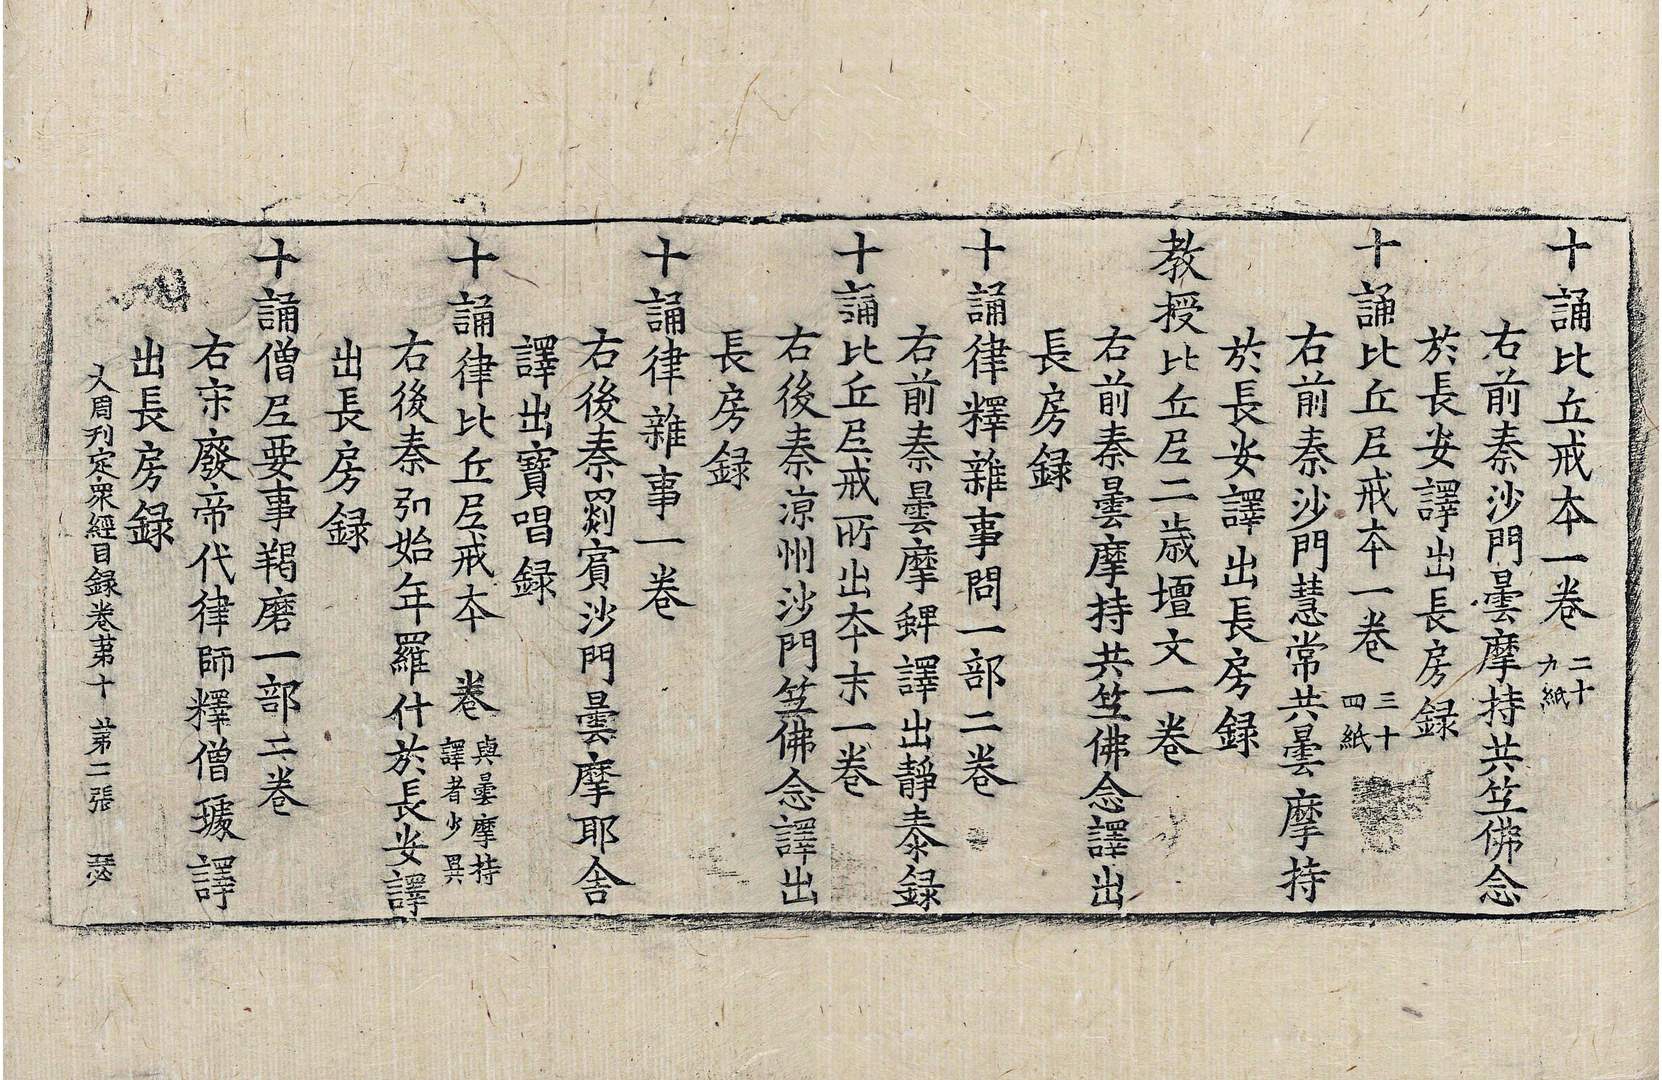 十誦比丘戒本一卷 二十九紙
右前秦沙門曇摩持共竺佛念
於長安譯出長房録
十誦比丘尼戒本一卷 三十四紙
右前秦沙門慧常共曇摩持
於長安譯出長房録
教授比丘尼二歳壇文一卷
右前秦曇摩持共竺佛念譯出
長房録
十誦律釋雜事問一部二卷
右前秦曇摩蜱譯出靜泰録
十誦比丘尼戒所出本末一卷
右後秦涼州沙門竺佛念譯出
長房録
十誦律雜事一卷
右後秦罽賓沙門曇摩耶舎
譯出寶唱録
十誦律比丘尼戒本 卷 與曇摩持譯者少異
右後秦弘始年羅什於長安譯
出長房録
十誦僧尼要事羯磨一部二卷
右宋廢帝代律師釋僧璩譯
出長房録
大周刊定衆經目録卷苐十 苐二張 瑟